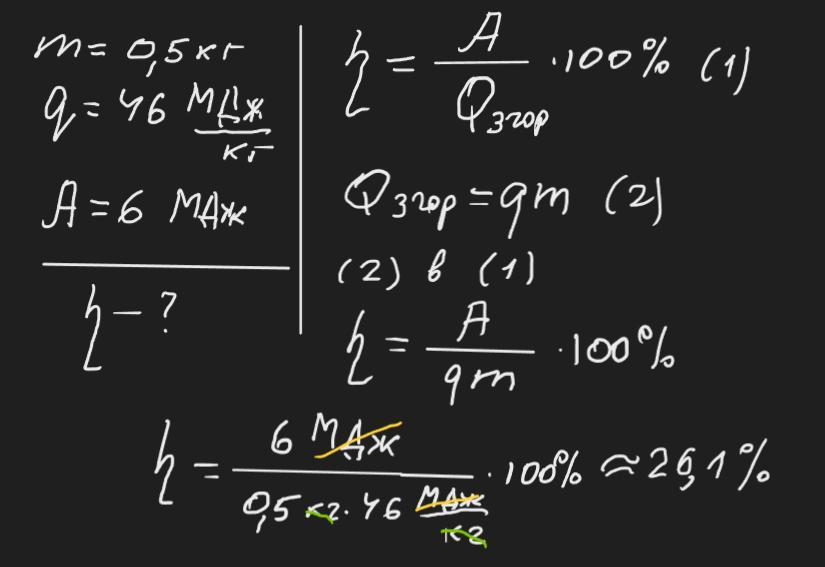 m = 0,5 кг
q = 46 МДж/кг
A = 6 МДж
η - ?
η = A/Qзгор · 100% (1)
Qзгор = qm (2)
(2) в (1)
η = A/qm · 100%
η = 6 МДж/0,5 кг · 46 МДж/кг · 100% ≈ 26,1%